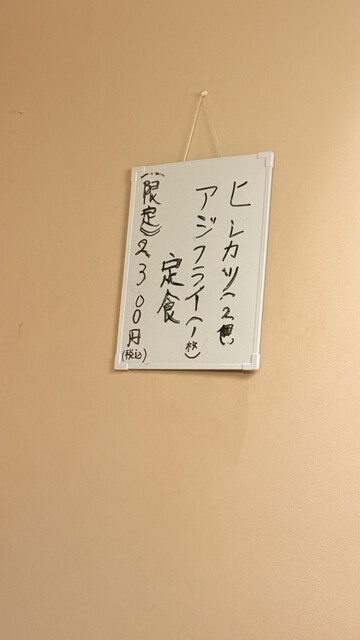 ヒレカツ(2個)
アジフライ(1枚)
定食
(限定)2,300円
(税込)